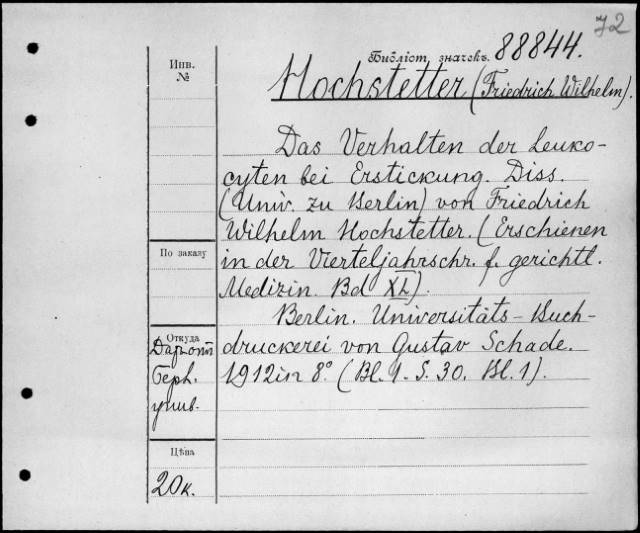 72
Библіот. значекъ. 88844.
Инв.
№
Hochstetter (Friedrich Wilhelm).
Das Verhalten der Leuko-
cyten bei Erstickung. Diss.
(Univ. zu Berlin) von Friedrich
Wilhelm Hochstetter. (Erschienen
in der Vierteljahrschr. f. gerichtl.
Medizin. Bd XL).
Berlin. Universitäts-Buch-
druckerei von Gustav Schade.
1912 in 8° (Bl. 1. S. 30. Bl. 1).
По заказу
Откуда
Берл.
унив.
Цѣна
20к.